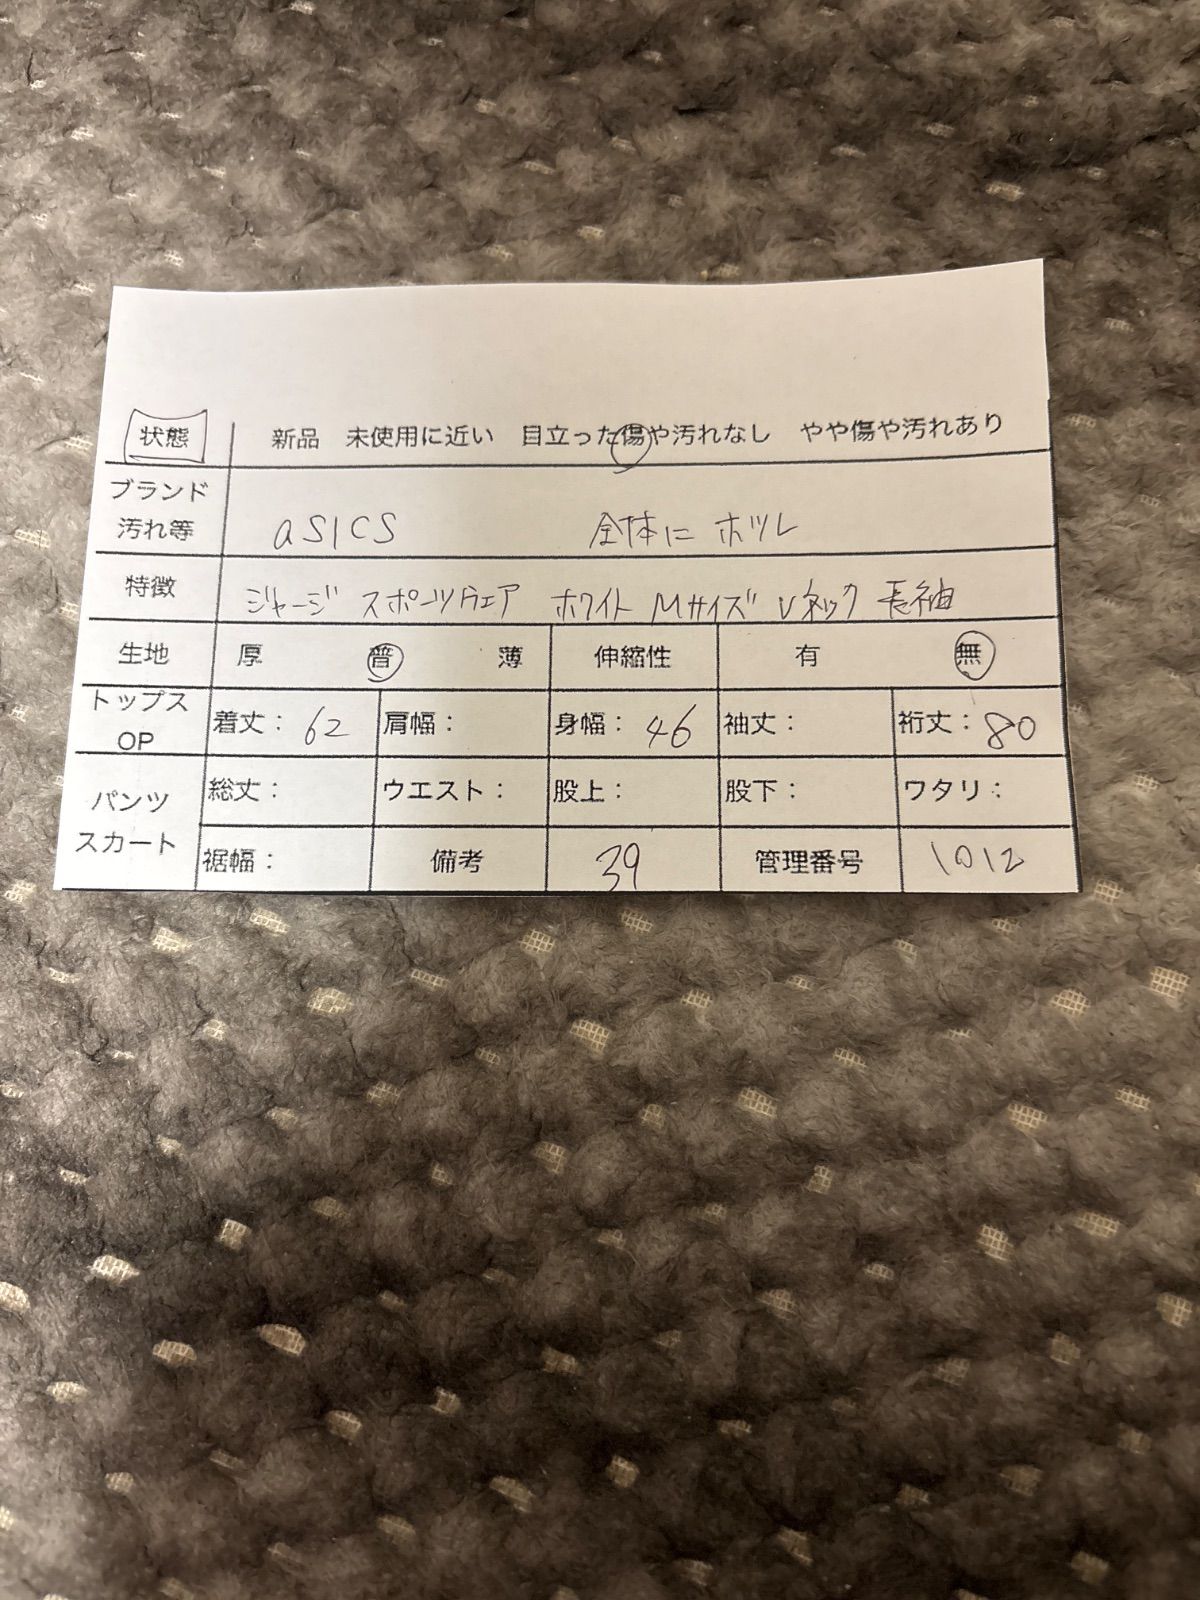 状態 新品 未使用に近い 目立った傷や汚れなし やや傷や汚れあり
ブランド
汚れ等 asics 全体に ホツレ
特徴 ジャージ スポーツウェア ホワイト Mサイズ Vネック 長袖
生地 厚 普 薄 伸縮性 有 無
トップス
OP 着丈：62 肩幅： 身幅：46 袖丈： 裄丈：80
パンツ
スカート 総丈： ウエスト： 股上： 股下： ワタリ：
裾幅： 備考 39 管理番号 1012